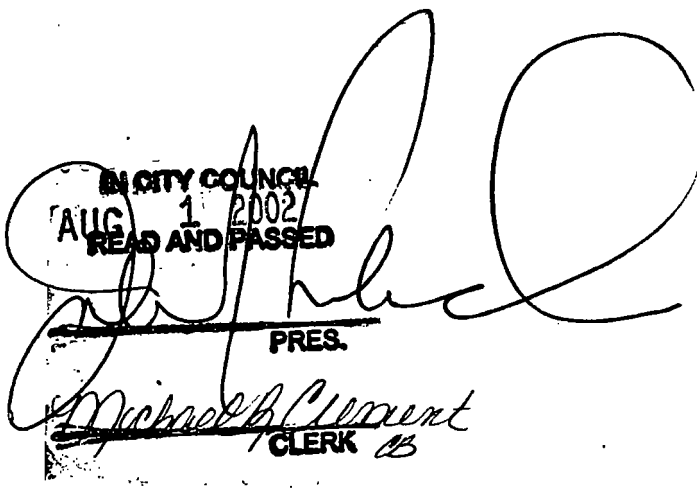 IN CITY COUNCIL
AUG 1 2002
READ AND PASSED
PRES.
Michael R. Clement
CLERK CB